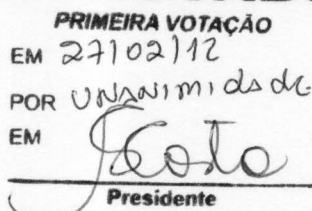 PRIMEIRA VOTAÇÃO
EM 27/02/12
POR UNANIMIDADE
EM
Costa
Presidente